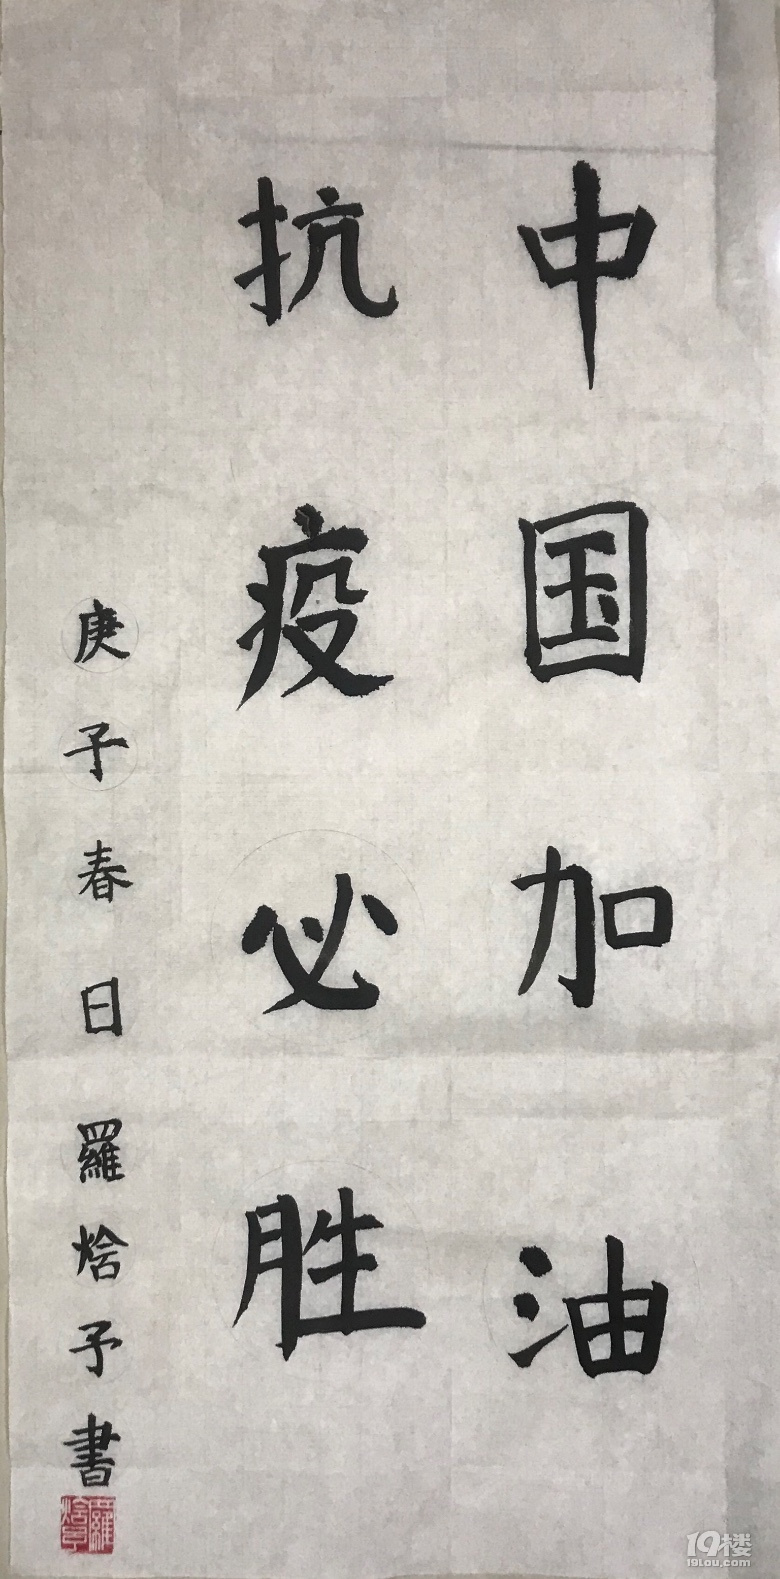 中国加油
抗疫必胜
庚子春日羅焓予書
羅焓予
19楼
19lou.com